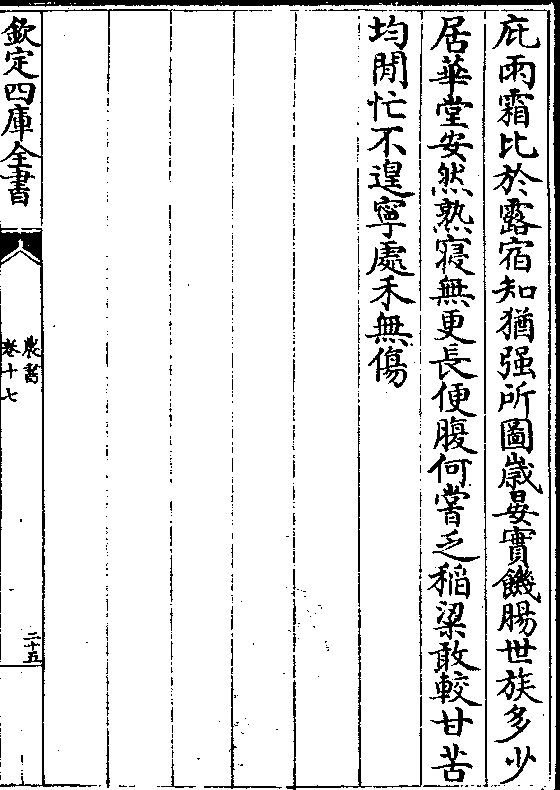 庇雨霜比於露宿知猶强所圖歲晏實饑腸世族多少
居華堂安然熟寝無更長便腹何嘗乏稻梁敢較甘苦
均閒忙不遑寧處禾無傷
欽定四庫全書
農書
卷十七
二十五